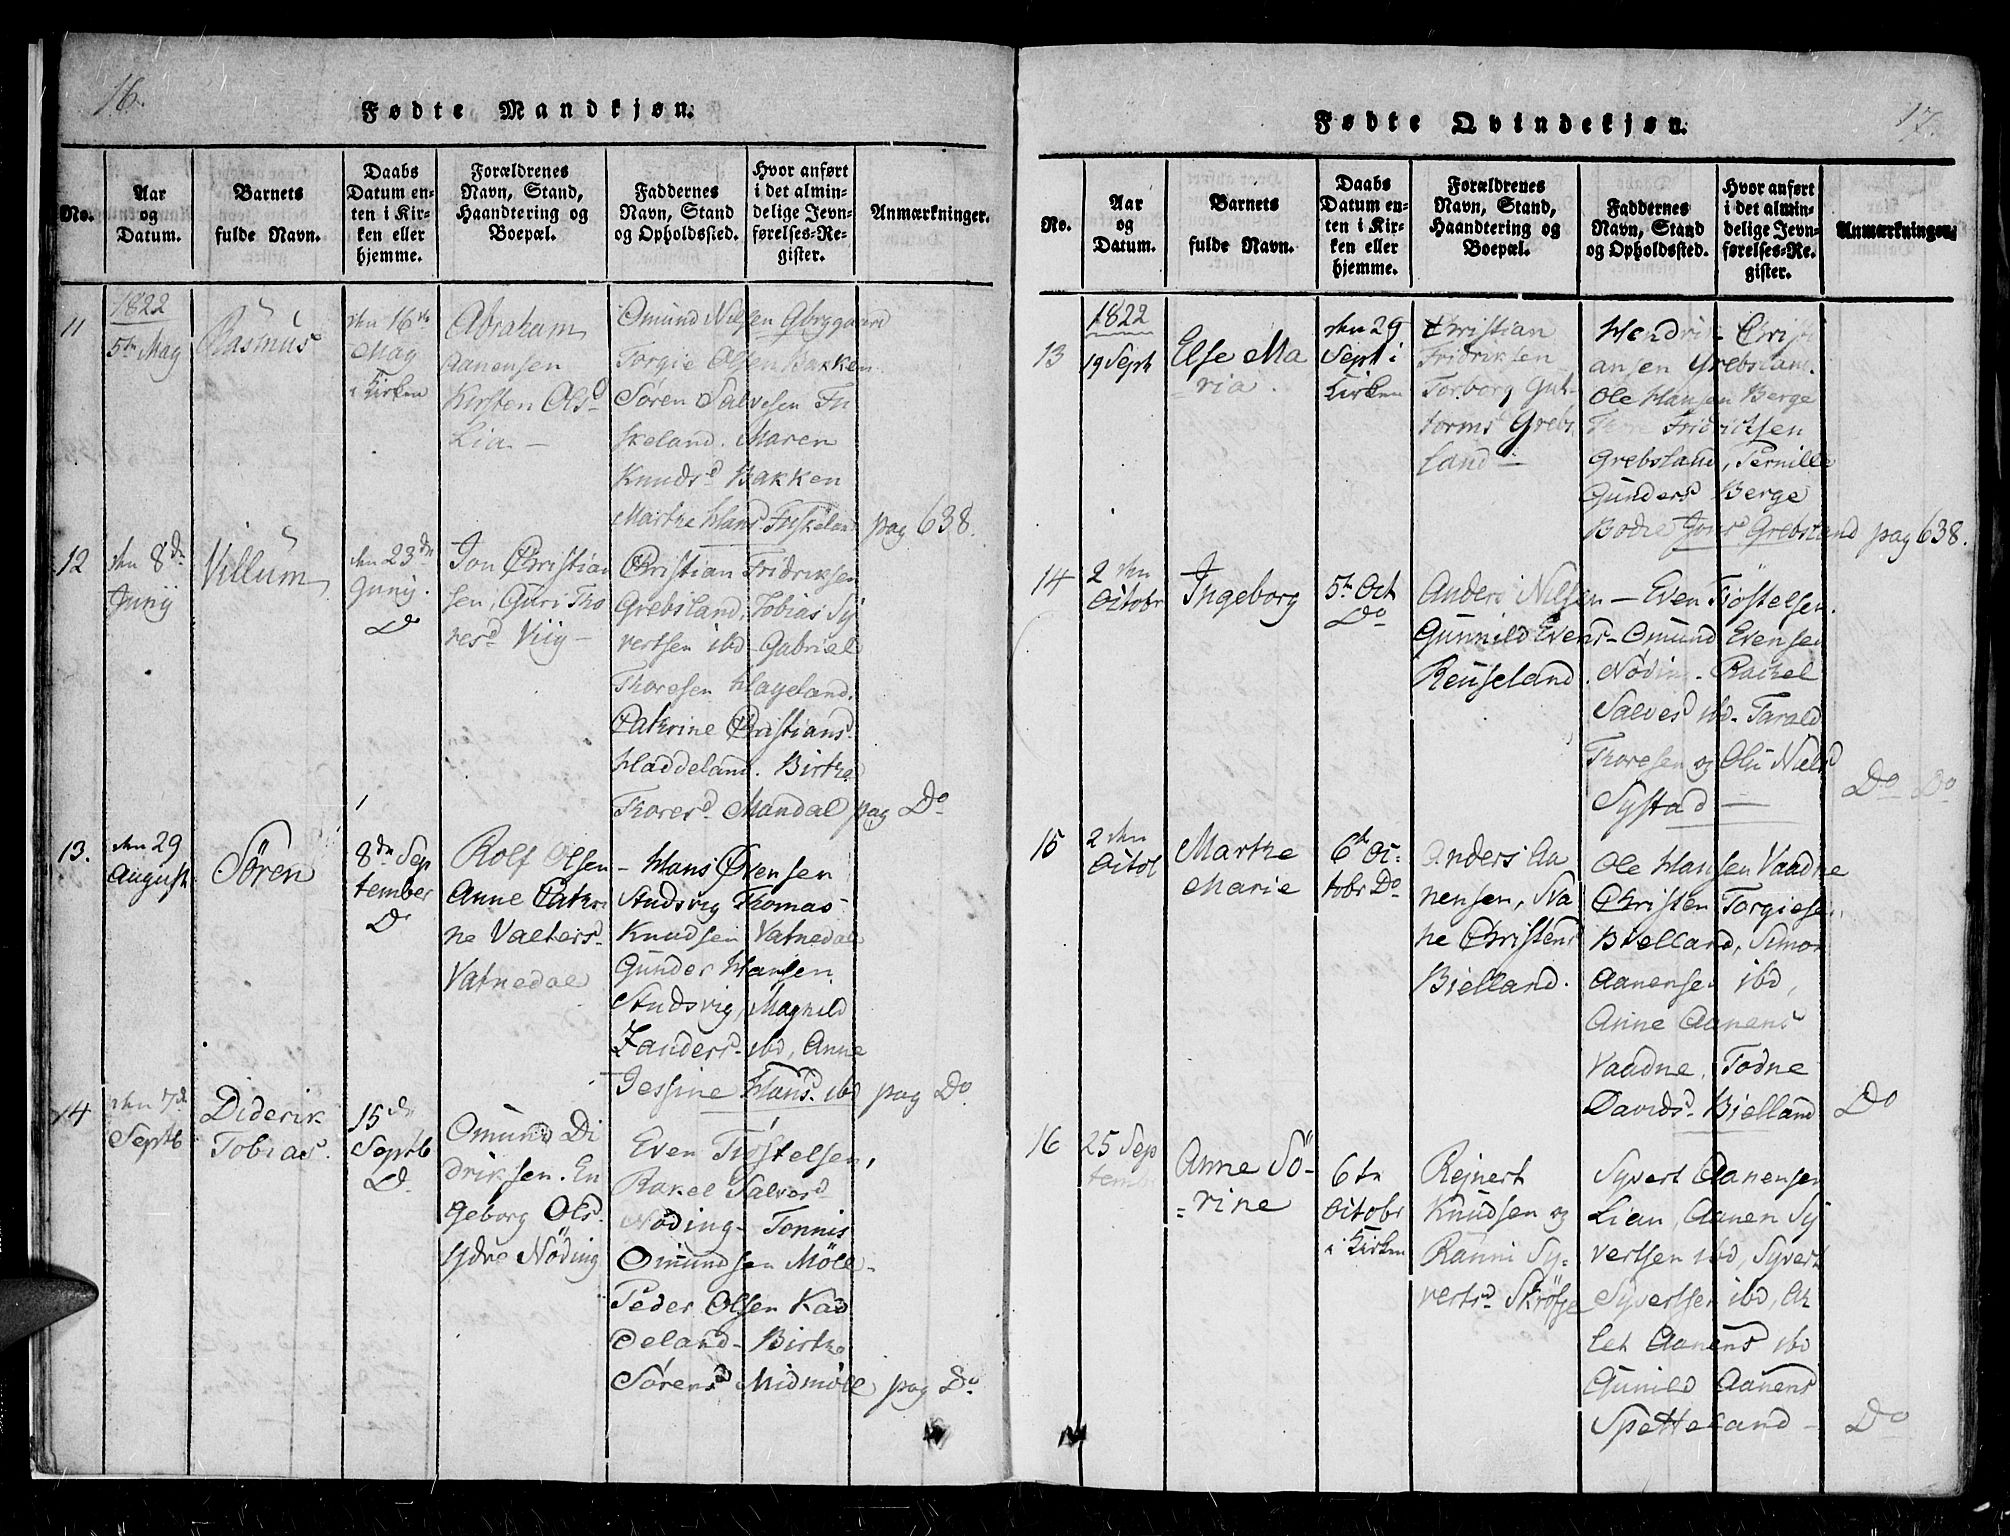 16.
Fødte Mandkjøn.
No.
Aar
og
Datum.
Barnets
fulde Navn.
Daabs
Datum en-
ten i Kir-
ken eller
hjemme.
Forældrenes
Navn, Stand,
Haandtering og
Boepæl.
Faddernes
Navn, Stand
og Opholdssted.
Hvor anført
i det almin-
delige Jevn-
førelses-Re-
gister.
Anmærkninger.
11
1822
5te May
Rasmus
den 16de
May
i Kirken
Abraham
Aanensen
Kirsten Olsd
Lia
Omund Nilsen
Torgie Olsen Bakken
Søren Salvesen Fu
skeland. Maren
Knudsd Bakken
Marthe Hansd Fuskeland
pag 638.
12
den 8de
Junij
Villum
den 23de
Junij.
Do
Jon Christian
sen, Guri Tho
resd Viig
Christian Fridriksen
Grebsland, Tobias Sy
vertsen ibd Gabriel
Thoresen Hageland.
Cathrine Christiansd
Haddeland. Birthe
Thoresd Mandal
pag Do
13.
den 29
August
Sören
8de Sep
tember
Do
Rolf Olsen
Anne Cathri
ne Valtersd
Vatnedal
Hans Øvensen
Studsvig Thomas
Knudsen Vatnedal
Gunder Hansen
Studsvig, Magnild
Zandersd ibd, Anne
Jessine Hansd ibd
pag Do
14
den 7de
Septb
Diderik
Tobias.
15de
Septb
Do
Omund Di
driksen. En
geborg Olsd
Nöding
Even Tiöstelsen,
Rakel Salvesd
Nöding - Tonnis
Omundsen Möll
Peder Olsen Kad
deland - Birthe
Sörensd Midmöll
pag Do
17.
Fødte Qvindekjøn.
No.
Aar
og
Datum.
Barnets
fulde Navn.
Daabs
Datum en-
ten i Kir-
ken eller
hjemme.
Forældrenes
Navn, Stand,
Haandtering og
Boepæl.
Faddernes
Navn, Stand
og Opholdssted.
Hvor anført
i det almin-
delige Jevn-
førelses-Re-
gister.
Anmærkninger.
13
1822
19 Sept
Else Ma
ria
den 29
Sept i
Kirken
Christian
Fridriksen
Torborg Gut-
tormsd Grebs
land
Hendrik Christi
ansen Grebsland.
Ole Hansen Berge
Fridricksen
Grebsland, Pernille
Gundersd Berge
Bodie Jonsd Grebsland
pag 638.
14
2 den
Octobr
Ingeborg
5te Oct
Do
Anders Nilsen
Gunnild Evensd
Reuseland.
Even Tiöstelsen.
Omund Evensen
Nöding. Rachel
Salvesd ibd. Tarald
Thoresen og Oli Nielsd
Systad
Do Do
15
2 den
Octob
Marthe
Marie
6te Oc-
tobr Do
Anders Aa
nensen, Sva
ne Christensd
Bielland.
Ole Hansen Vaadne
Christen Torgiesen,
Bielland, Simon
Aanensen ibd,
Anne Aanensd
Vaadne, Todne
Davidsd Bielland
Do
16
25 Sep
tembr
Anne Sö-
rine
6te
Octobr
i Kirken
Rejnert
Knudsen og
Ranni Sy-
vertsd Skröfse
Syvert Aanensen
Lian, Aanen Sy
vertsen ibd, Syvert
Syvertsen ibd, As
let Aanensd ibd
Gunild Aanensd
Spetteland
Do